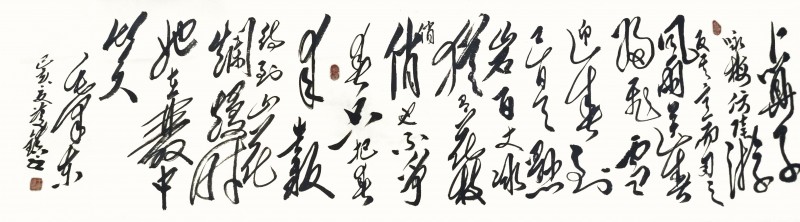 卜算子
咏梅
反其意而用之
风雨送春
归飞雪
迎春到
已是悬
岩百丈冰
犹有花枝
俏 俏也不争
春只把春
来報
待到山花
烂熳时
她在丛中
笑
毛泽东